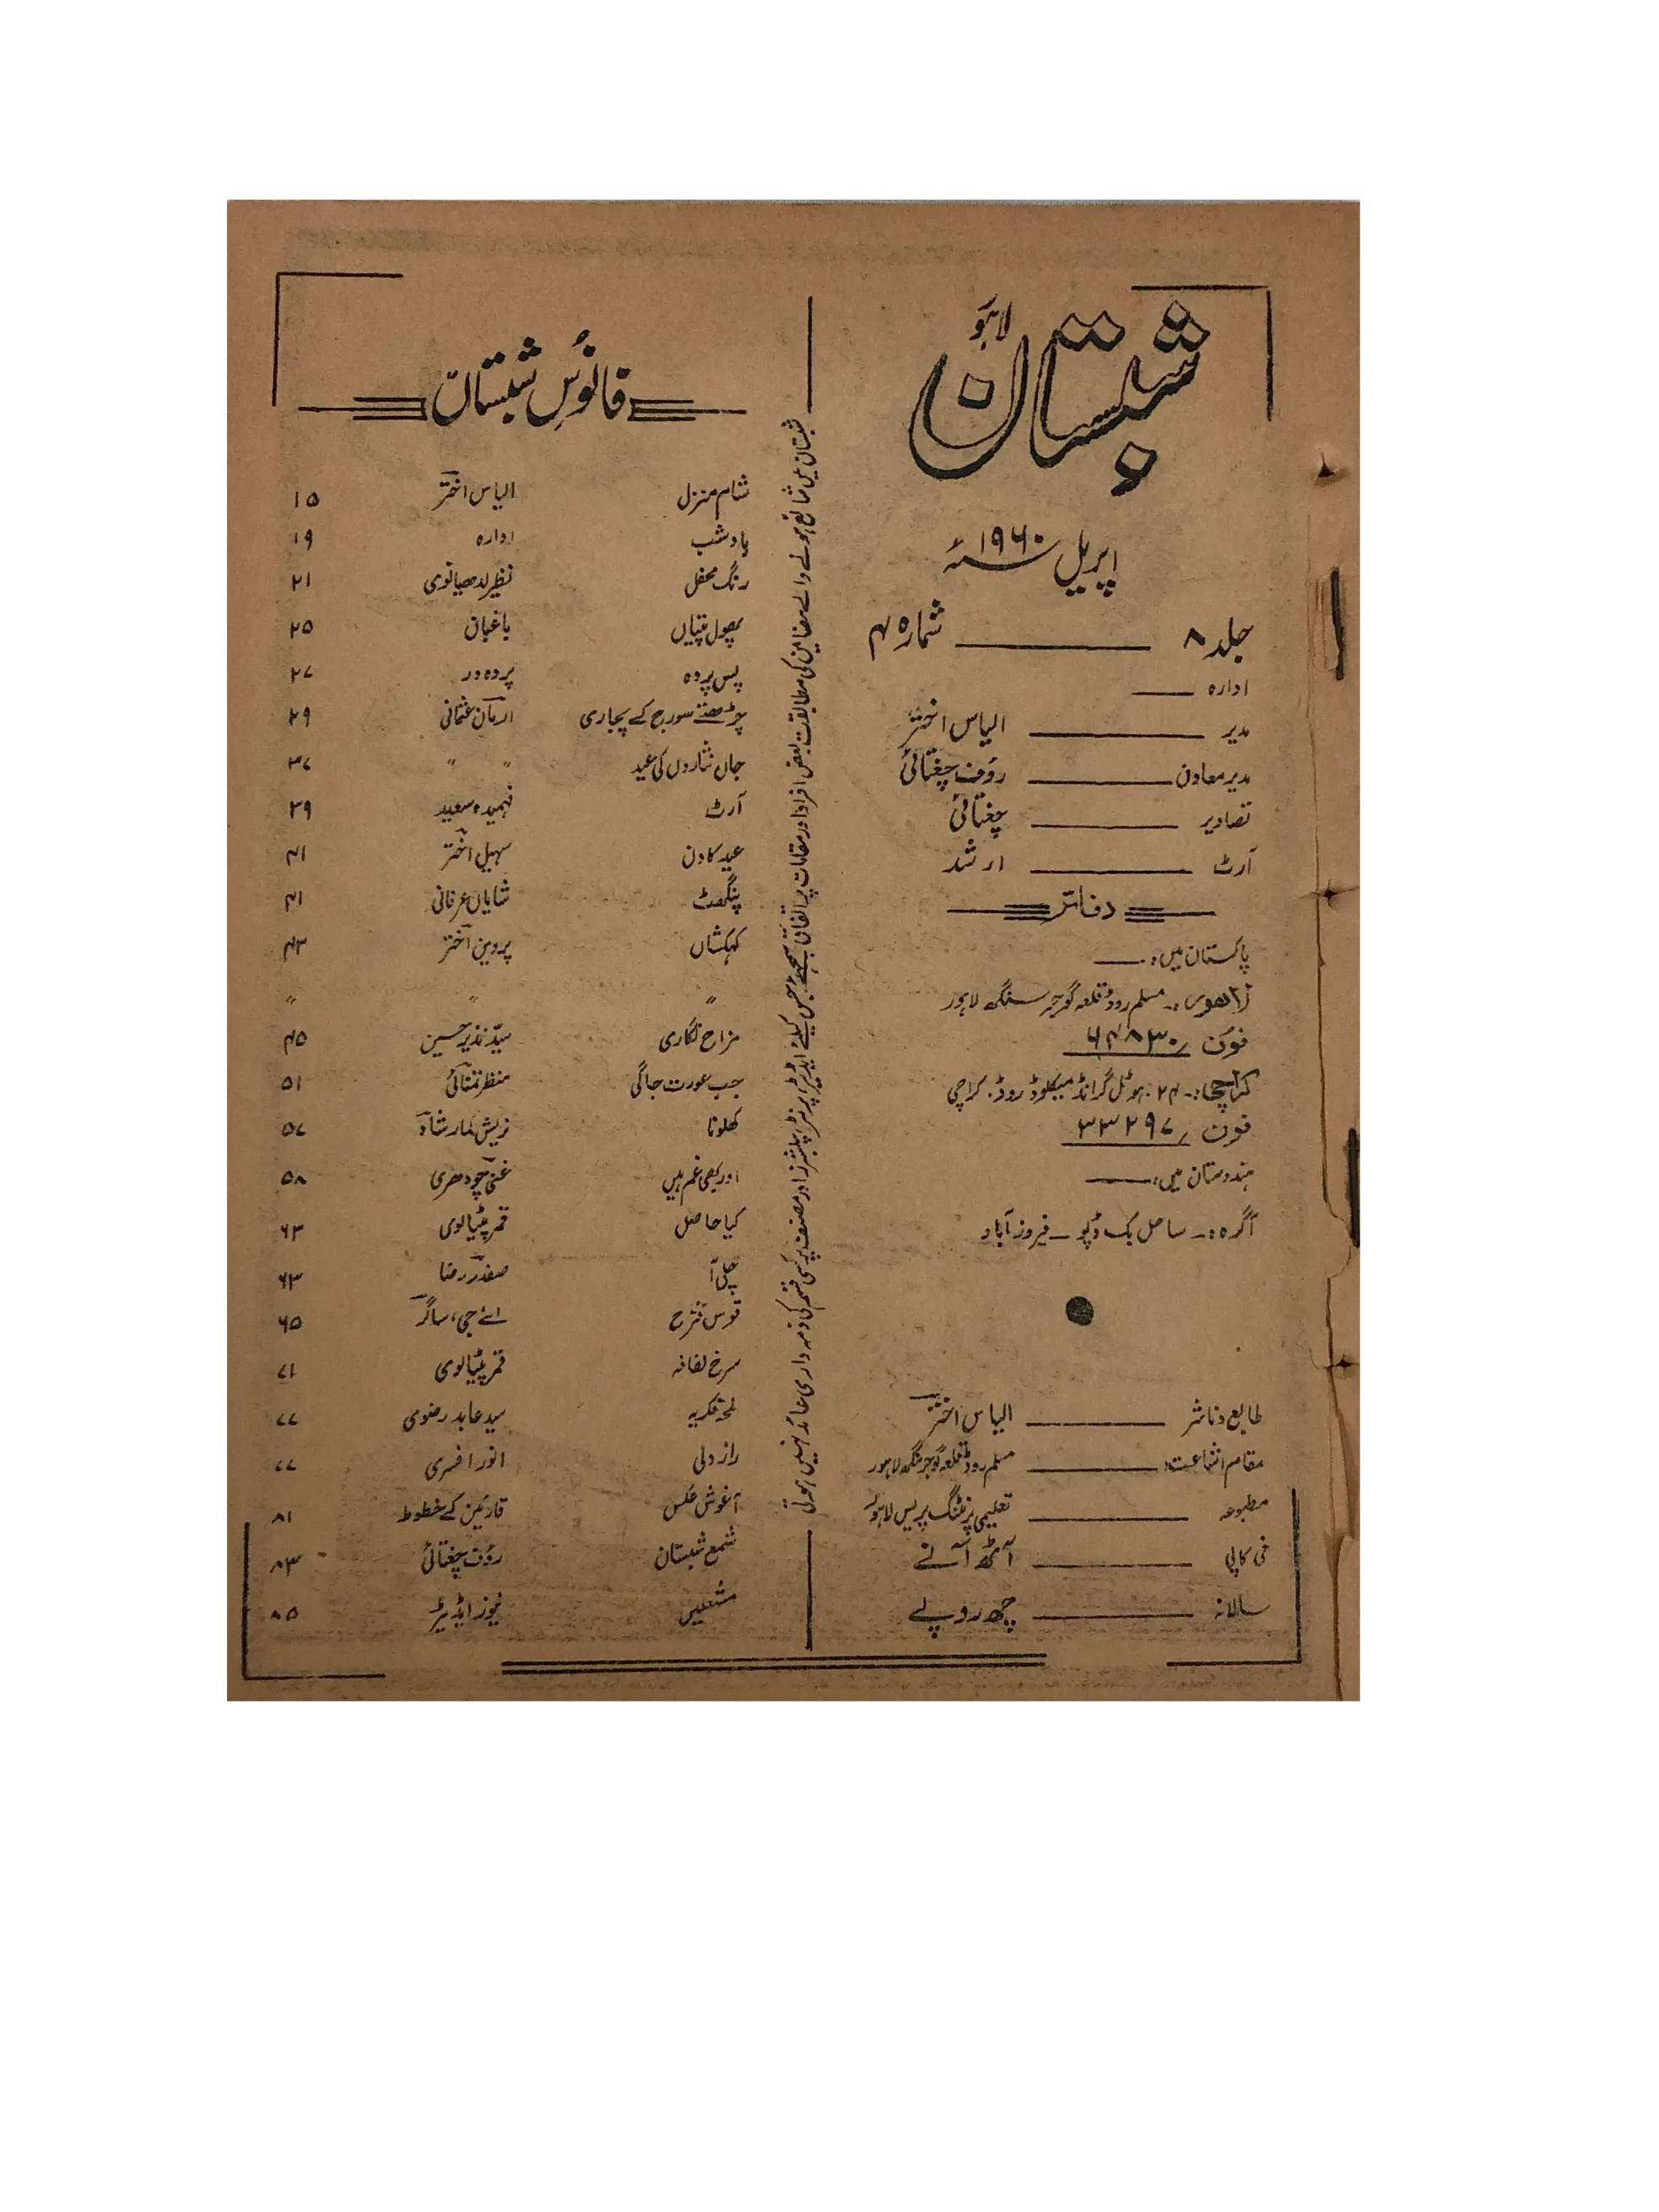 شبستان لاہور
اپریل ۱۹۶۰ء
جلد ۸ شمارہ ۴
ادارہ
مدیر الیاس اختر
مدیر معاون رؤف چغتائی
تصاویر چغتائی
آرٹ ارشد
دفاتر
پاکستان میں:
لاہور:۔ مسلم روڈ قلعہ گوجر سنگھ لاہور
فون ۶۴۸۳۰
کراچی:۔ ۲۴۔ ہوٹل گرانڈ میکلوڈ روڈ۔ کراچی
فون ۳۳۲۹۷
ہندوستان میں:
آگرہ:۔ ساحل بک ڈپو ۔ فیروز آباد
طابع و ناشر الیاس اختر
مقام اشاعت: مسلم روڈ قلعہ گوجر سنگھ لاہور
مطبوعہ تعلیمی پرنٹنگ پریس لاہور
فی کاپی آٹھ آنے
سالانہ چھ روپے
شبستان میں شائع ہونے والے مضامین کی مطابقت بعض افراد اور مقامات پر اتفاقیہ سمجھئے جس کیلئے ایڈیٹر، پرنٹر، پبلشر اور مصنف پر کسی قسم کی ذمہ داری عائد نہیں ہوتی
فانوسِ شبستان
شام منزل الیاس اختر ۱۵
یاد شب ادارہ ۱۹
رنگ محفل نظیر لدھیانوی ۲۱
پھول پتیاں باغبان ۲۵
پس پردہ پردہ در ۲۷
چڑھتے سورج کے پجاری ارمان عثمانی ۲۹
جاں نثاروں کی عید " " ۳۷
آرٹ فہمیدہ سعید ۳۹
عید کا دن سہیل اختر ۴۱
پنگھٹ شایاں عرفانی ۴۱
کہکشاں پروین اختر ۴۳
" " "
مزاح نگاری سیّد نذیر حسین ۴۵
جب عورت جاگی منظر تمنائی ۵۱
کھلونا نریش کمار شاد ۵۷
اور بھی غم ہیں غنی چودھری ۵۸
کیا حاصل قمر پٹیالوی ۶۳
چلی آ صفدر رضا ۶۳
قوس قزح اے جی، ساگر ۶۵
سرخ لفافہ قمر پٹیالوی ۷۱
لمحۂ فکریہ سید عابد رضوی ۷۷
راز دلی انور افسری ۷۷
آغوش عکس قارئین کے خطوط ۸۱
شمع شبستان رؤف چغتائی ۸۳
مشعلیں نیوز ایڈیٹر ۸۵